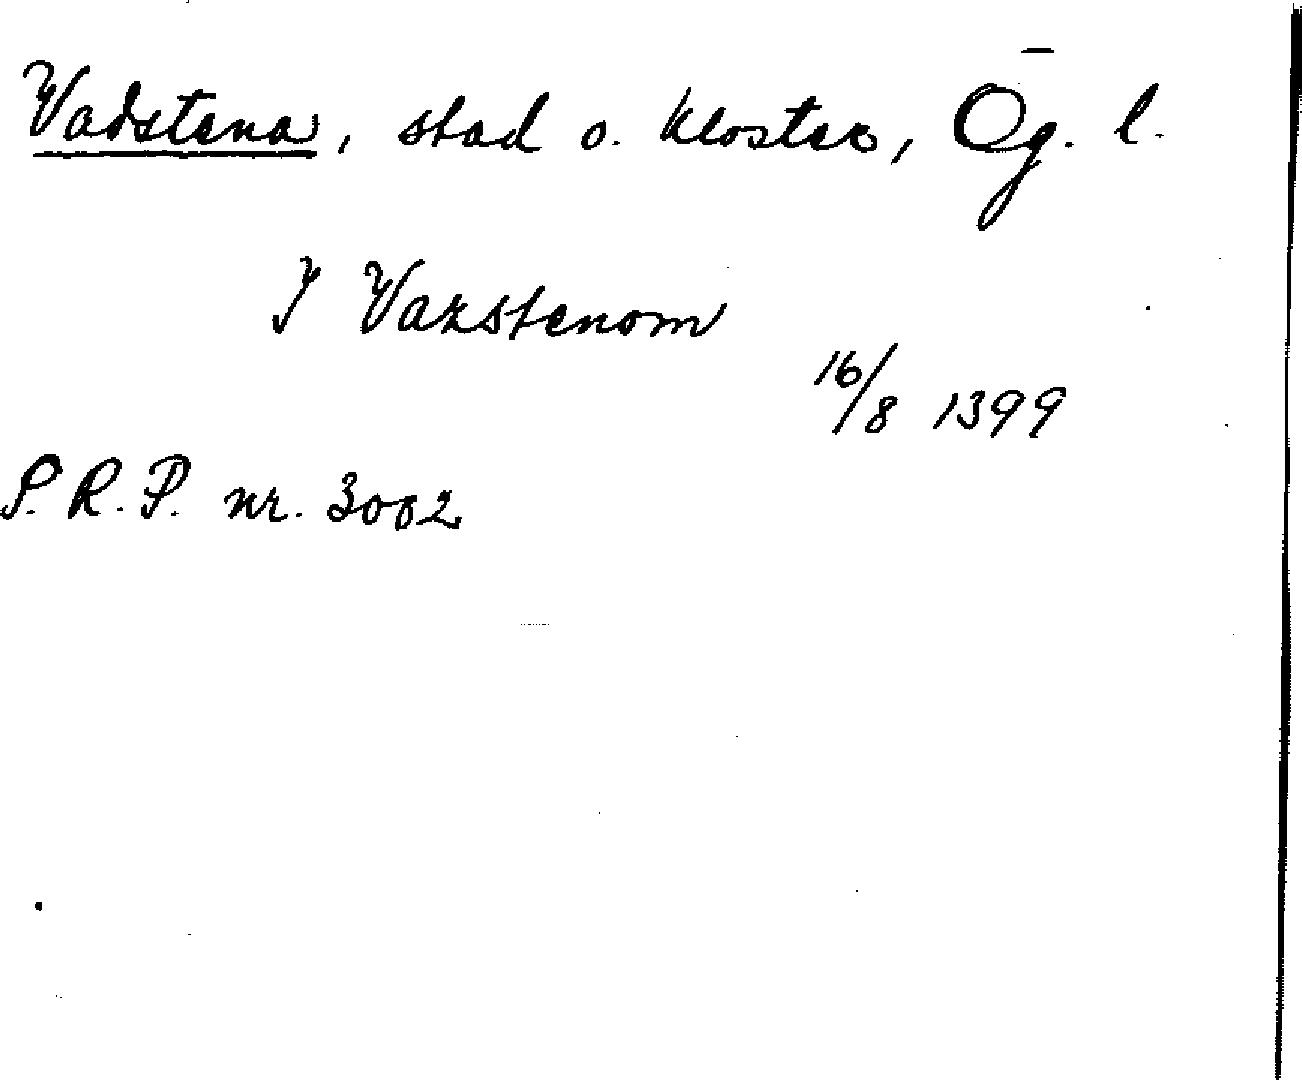 Vadstena, stad o. kloster, Ög. l.
I Vazstenom
16/8 1399
S. R. P. nr. 3002